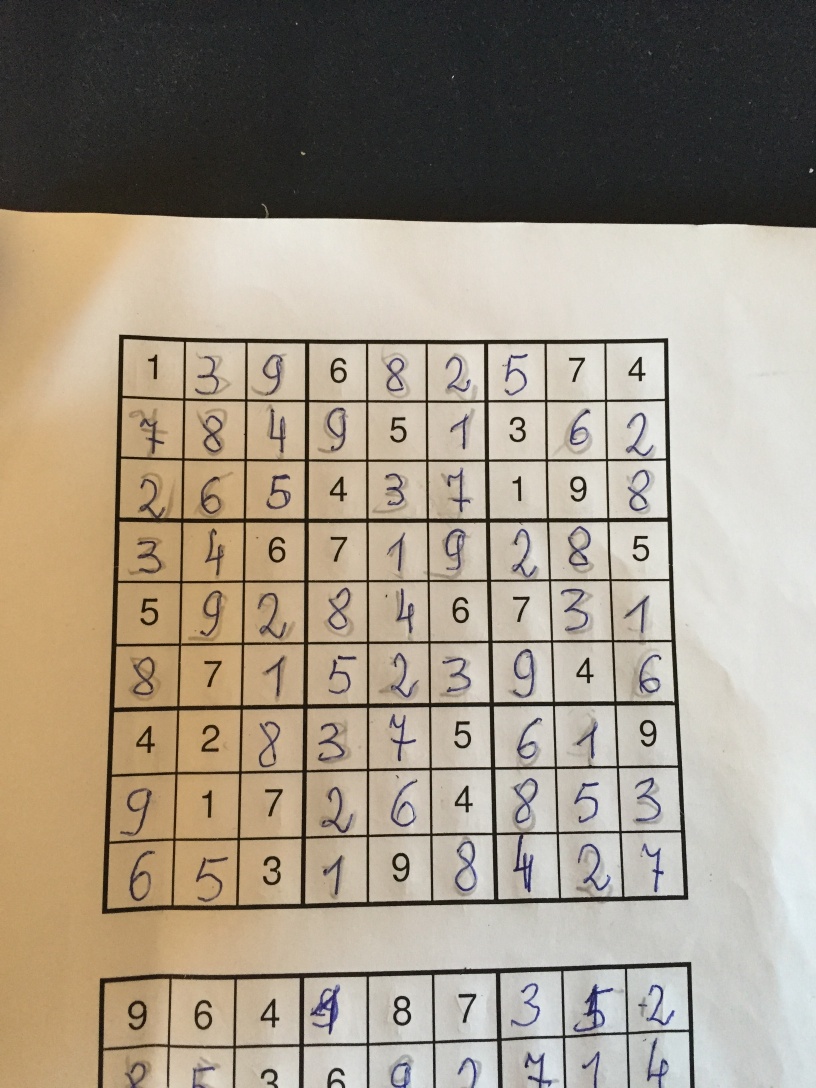 1 3 9 6 8 2 5 7 4
7 8 4 9 5 1 3 6 2
2 6 5 4 3 7 1 9 8
3 4 6 7 1 9 2 8 5
5 9 2 8 4 6 7 3 1
8 7 1 5 2 3 9 4 6
4 2 8 3 7 5 6 1 9
9 1 7 2 6 4 8 5 3
6 5 3 1 9 8 4 2 7
9 6 4 8 7 3 2
8 5 3 6 9 2 7 1 4